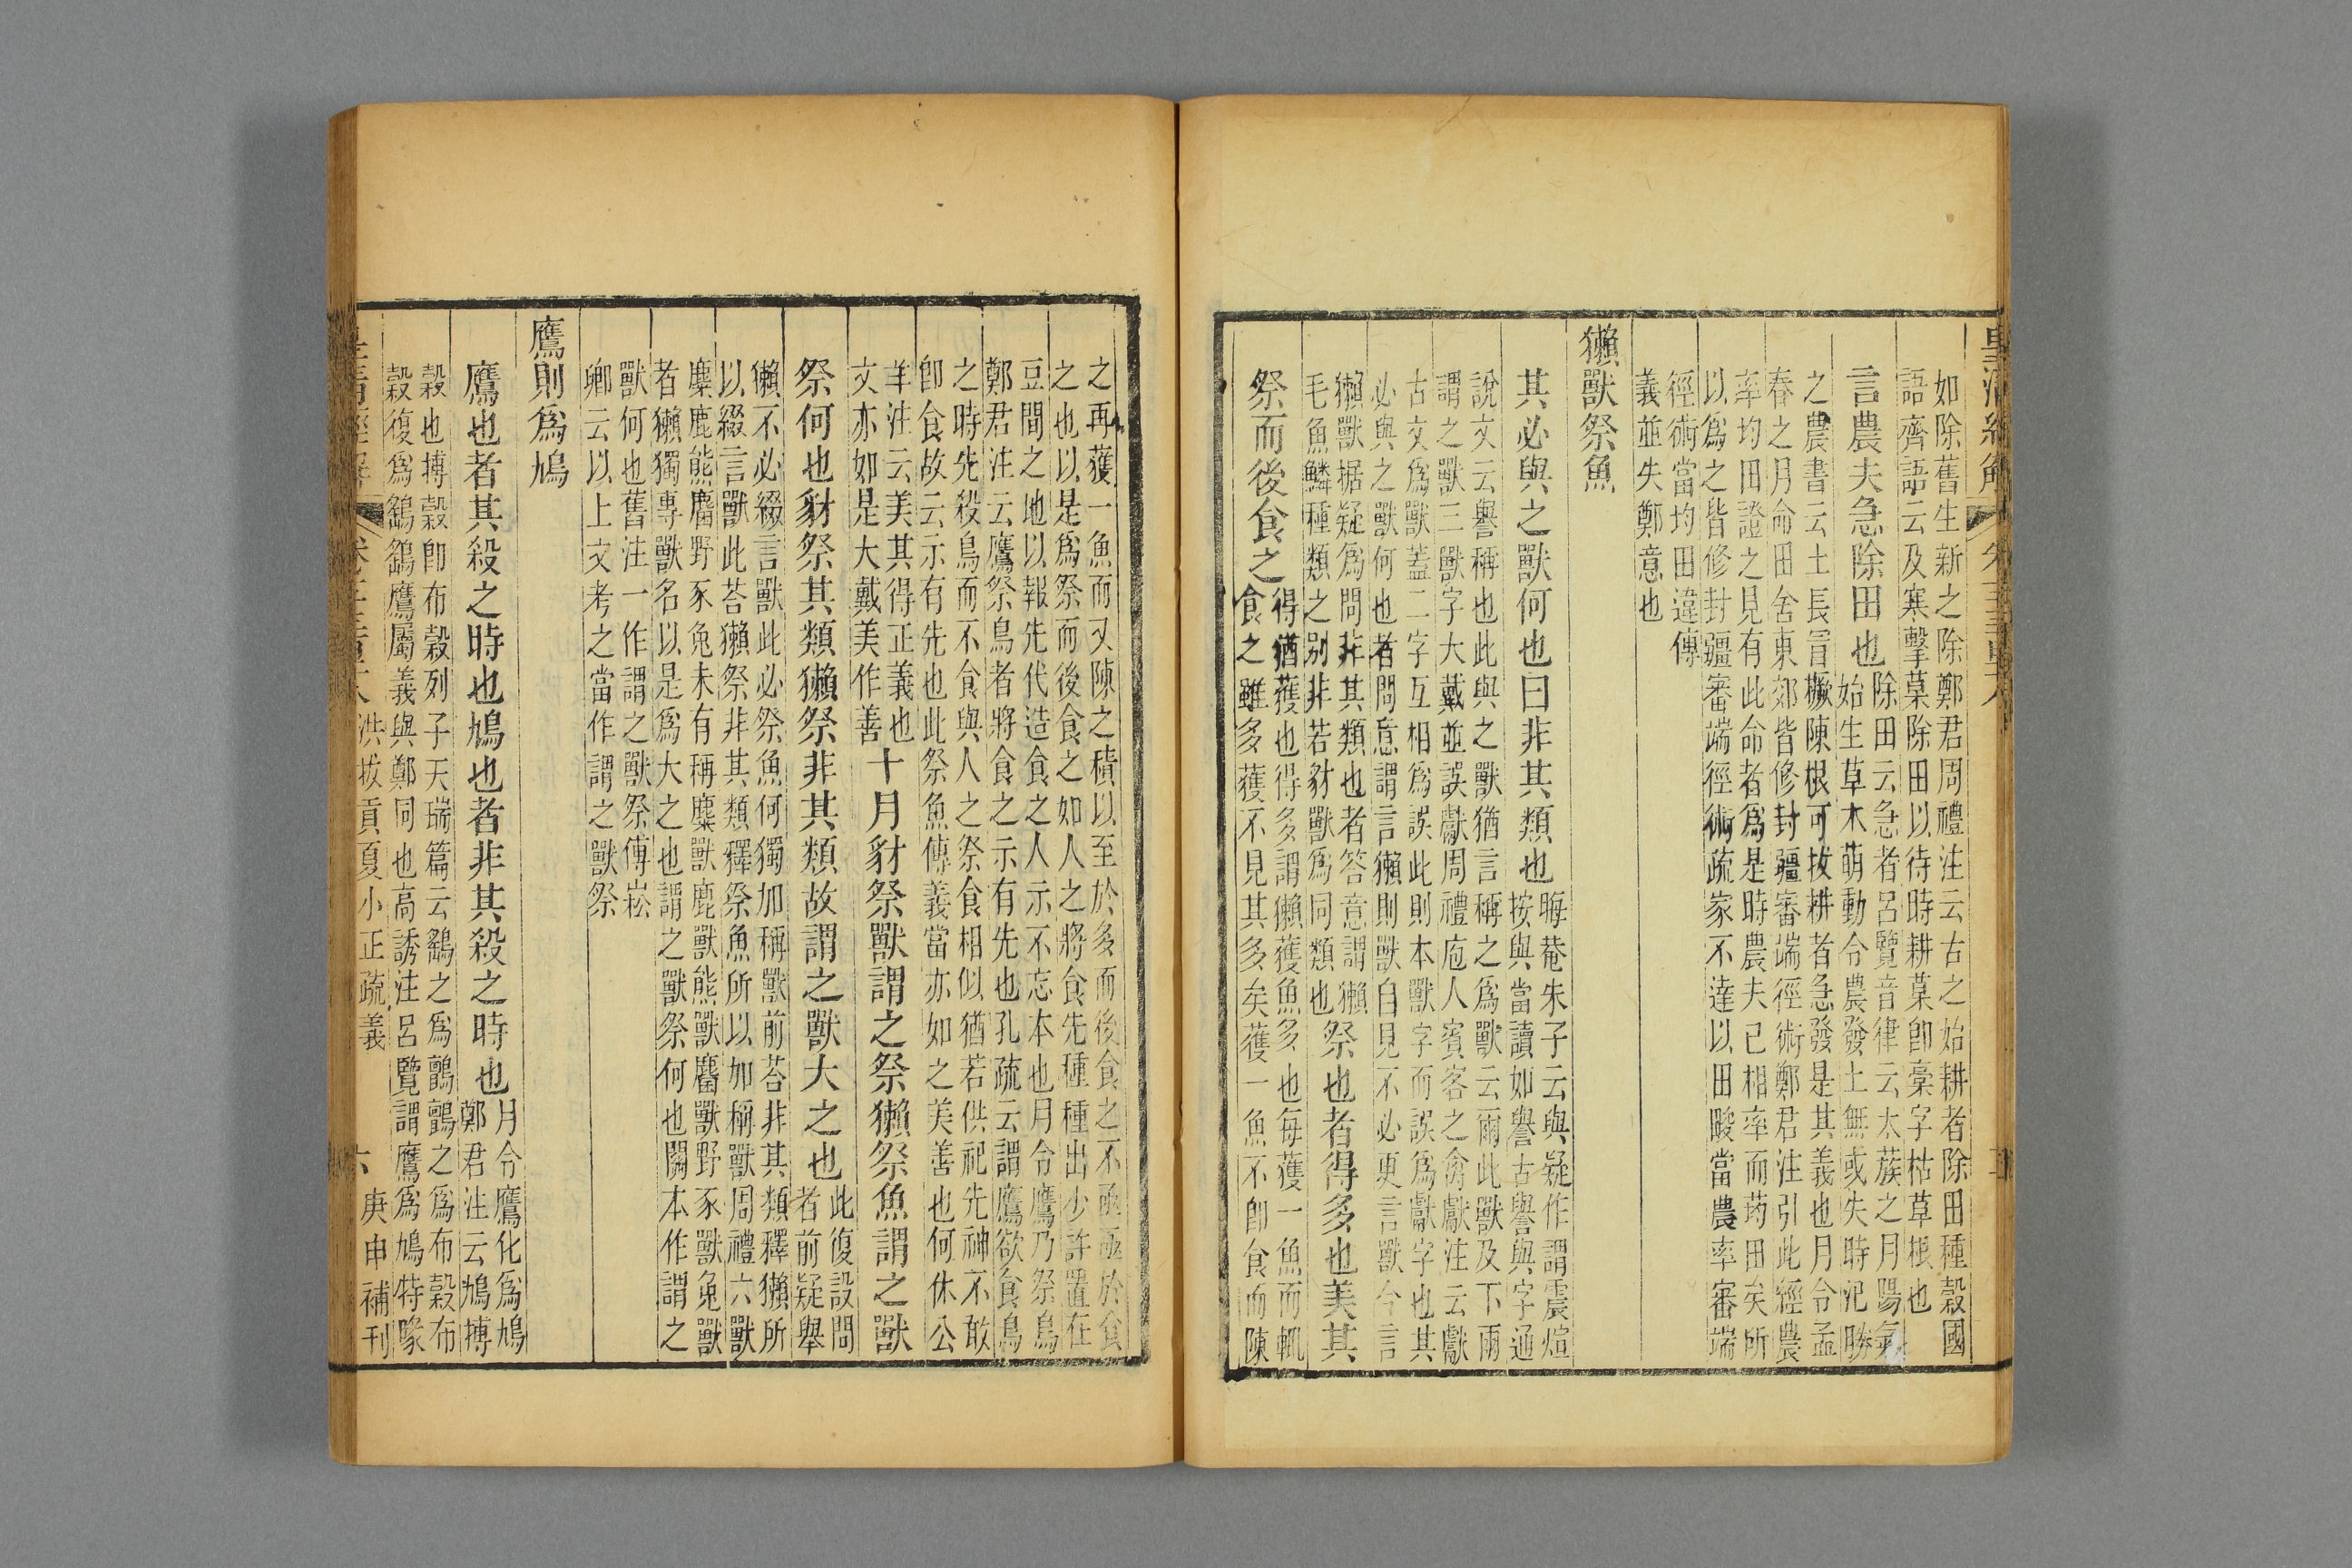 如除舊生新之除鄭君周禮注云古之始耕者除田種穀國
語齊語云及寒擊菒除田以待時耕菒卽藁字枯草根也
言農夫急除田也
除田云急者呂覽音律云太蔟之月陽氣
始生草木萌動令農發土無或失時氾勝
之農書云土長冒橛陳根可拔耕者急發是其義也月令孟
春之月命田舍東郊皆修封疆審端徑術鄭君注引此經農
率均田證之見有此命者爲是時農夫已相率而均田矣所
以爲之皆修封疆審端徑術疏家不達以田畯當農率審端
徑術當均田違傳
義並失鄭意也
獺獸祭魚
其必與之獸何也曰非其類也
晦菴朱子云與疑作謂震煊
按與當讀如譽古譽與字通
說文云譽稱也此與之獸猶言稱之爲獸云爾此獸及下兩
謂之獸三獸字大戴並誤獻周禮庖人賓客之禽獻注云獻
古文爲獸蓋二字互相爲誤此則本獸字而誤爲獻字也其
必與之獸何也者問意謂言獺則獸自見不必更言獸今言
獺獸据疑爲問非其類也者答意謂獺
毛魚鱗種類之別非若豺獸爲同類也
祭也者得多也美其
祭而後食之
得猶獲也得多謂獺獲魚多也每獲一魚而輒
食之雖多獲不見其多矣獲一魚不卽食而陳
之再獲一魚而又陳之積以至於多而後食之不亟亟於食
之也以是爲祭而後食之如人之將食先種種出少許置在
豆間之地以報先代造食之人示不忘本也月令鷹乃祭鳥
鄭君注云鷹祭鳥者將食之示有先也孔疏云謂鷹欲食鳥
之時先殺鳥而不食與人之祭食相似猶若供祀先神不敢
卽食故云示有先也此祭魚傳義當亦如之美善也何休公
羊注云美其得正義也
文亦如是大戴美作善
十月豺祭獸謂之祭獺祭魚謂之獸
祭何也豺祭其類獺祭非其類故謂之獸大之也
此復設問
者前疑舉
獺不必綴言獸此必祭魚何獨加稱獸前荅非其類釋獺所
以綴言獸此荅獺祭非其類釋祭魚所以加稱獸周禮六獸
麋鹿熊麕野豕兔未有稱麋獸鹿獸熊獸麕獸野豕獸兔獸
者獺獨專獸名以是爲大之也謂之獸祭何也關本作謂之
獸何也舊注一作謂之獸祭傅崧
卿云以上文考之當作謂之獸祭
鷹則爲鳩
鷹也者其殺之時也鳩也者非其殺之時也
月令鷹化爲鳩
鄭君注云鳩搏
穀也搏穀卽布穀列子天瑞篇云鷂之爲鸇鸇之爲布穀布
穀復爲鷂鷂鷹屬義與鄭同也高誘注呂覽謂鷹爲鳩特喙
洪拔貢夏小正疏義
六
庚申補刊